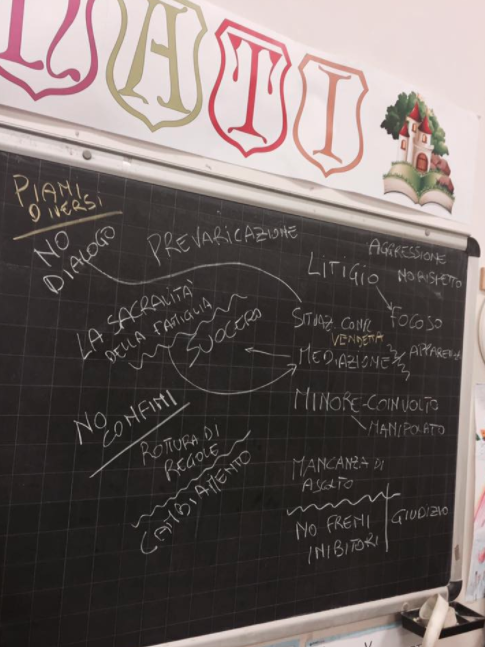 ATI
PIANI
DIVERSI
NO
DIALOGO
PREVARICAZIONE
LA SACRALITÀ
DELLA FAMIGLIA
SUOCERO
NO
CONFINI
ROTTURA DI
REGOLE
CAMBIAMENTO
AGGRESSIONE
NO RISPETTO
LITIGIO
FOCOSO
SITUAZ. CONF
VENDETTA
MEDIAZIONE
MINORE-COINVOLTO
MANIPOLATO
MANCANZA DI
ASCOLTO
NO FRENI
INIBITORI
GIUDIZIO